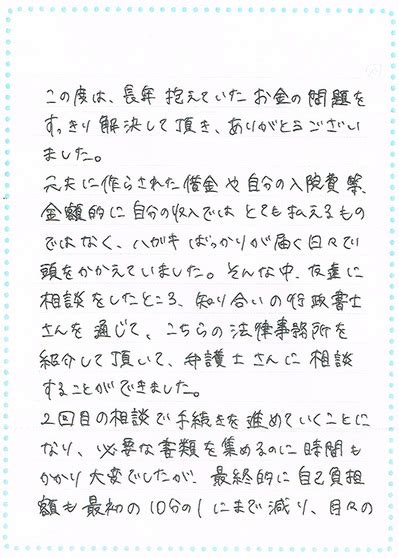 この度は、長年抱えていたお金の問題を
すっきり解決して頂き、ありがとうござい
ました。
元夫に作らされた借金や自分の入院費等、
金額的に自分の収入ではとても払えるもの
ではなく、ハガキばっかりが届く日々で
頭をかかえていました。そんな中、友達に
相談をしたところ、知り合いの行政書士
さんを通じて、こちらの法律事務所を
紹介して頂いて、弁護士さんに相談
することができました。
2回目の相談で手続きを進めていくことに
なり、必要な書類を集めるのに時間も
かかり大変でしたが、最終的に自己負担
額も最初の10分の1にまで減り、月々の